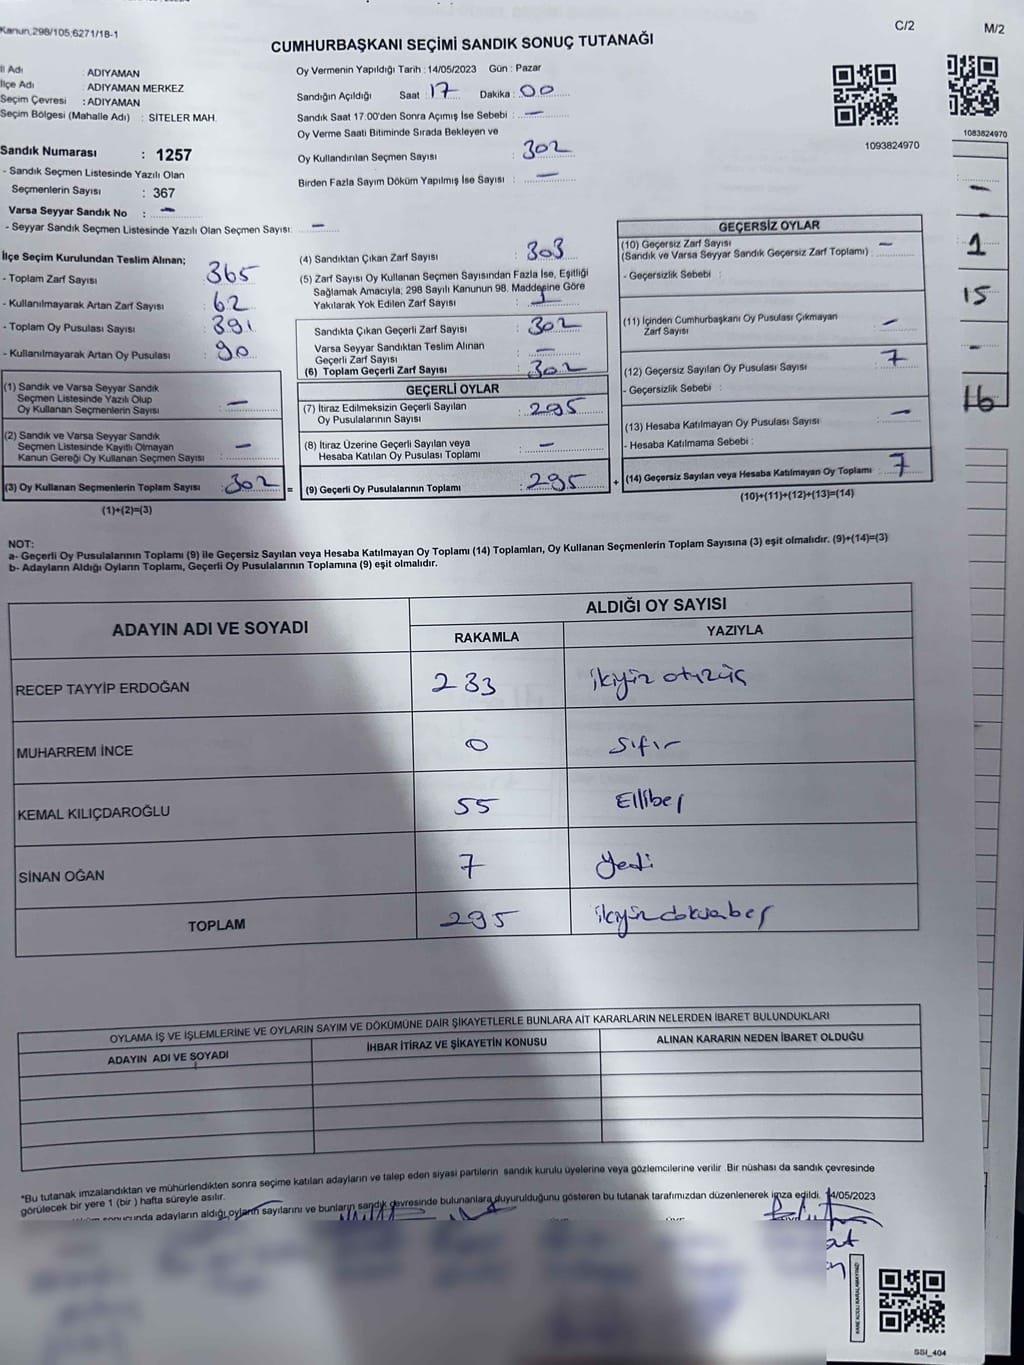 Kanun,298/105,6271/18-1
C/2
M/2
CUMHURBAŞKANI SEÇİMİ SANDIK SONUÇ TUTANAĞI
İl Adı : ADIYAMAN
İlçe Adı : ADIYAMAN MERKEZ
Seçim Çevresi : ADIYAMAN
Seçim Bölgesi (Mahalle Adı) : SİTELER MAH.
Oy Vermenin Yapıldığı Tarih : 14/05/2023 Gün : Pazar
Sandığın Açıldığı Saat : 17 Dakika : 00
Sandık Saat 17.00'den Sonra Açımış İse Sebebi : —
Oy Verme Saati Bitiminde Sırada Bekleyen ve
Oy Kullandırılan Seçmen Sayısı : 302
Birden Fazla Sayım Döküm Yapılmış İse Sayısı : —
1093824970
1083824970
Sandık Numarası : 1257
- Sandık Seçmen Listesinde Yazılı Olan
Seçmenlerin Sayısı : 367
Varsa Seyyar Sandık No : —
- Seyyar Sandık Seçmen Listesinde Yazılı Olan Seçmen Sayısı: —
İlçe Seçim Kurulundan Teslim Alınan;
- Toplam Zarf Sayısı : 365
- Kullanılmayarak Artan Zarf Sayısı : 62
- Toplam Oy Pusulası Sayısı : 391
- Kullanılmayarak Artan Oy Pusulası : 90
(1) Sandık ve Varsa Seyyar Sandık
Seçmen Listesinde Yazılı Olup
Oy Kullanan Seçmenlerin Sayısı : —
(2) Sandık ve Varsa Seyyar Sandık
Seçmen Listesinde Kayıtlı Olmayan
Kanun Gereği Oy Kullanan Seçmen Sayısı : —
(3) Oy Kullanan Seçmenlerin Toplam Sayısı : 302 =
(1)+(2)=(3)
(4) Sandıktan Çıkan Zarf Sayısı : 303
(5) Zarf Sayısı Oy Kullanan Seçmen Sayısından Fazla İse, Eşitliği
Sağlamak Amacıyla; 298 Sayılı Kanunun 98. Maddesine Göre
Yakılarak Yok Edilen Zarf Sayısı : 1
Sandıkta Çıkan Geçerli Zarf Sayısı : 302
Varsa Seyyar Sandıktan Teslim Alınan
Geçerli Zarf Sayısı : —
(6) Toplam Geçerli Zarf Sayısı : 302
GEÇERLİ OYLAR
(7) İtiraz Edilmeksizin Geçerli Sayılan
Oy Pusulalarının Sayısı : 295
(8) İtiraz Üzerine Geçerli Sayılan veya
Hesaba Katılan Oy Pusulası Toplamı : —
(9) Geçerli Oy Pusulalarının Toplamı : 295 +
GEÇERSİZ OYLAR
(10) Geçersiz Zarf Sayısı
(Sandık ve Varsa Seyyar Sandık Geçersiz Zarf Toplamı) : —
- Geçersizlik Sebebi :
(11) İçinden Cumhurbaşkanı Oy Pusulası Çıkmayan
Zarf Sayısı : —
(12) Geçersiz Sayılan Oy Pusulası Sayısı : 7
- Geçersizlik Sebebi :
(13) Hesaba Katılmayan Oy Pusulası Sayısı : —
- Hesaba Katılmama Sebebi :
(14) Geçersiz Sayılan veya Hesaba Katılmayan Oy Toplamı : 7
(10)+(11)+(12)+(13)=(14)
—
1
15
-
16
NOT:
a- Geçerli Oy Pusulalarının Toplamı (9) ile Geçersiz Sayılan veya Hesaba Katılmayan Oy Toplamı (14) Toplamları, Oy Kullanan Seçmenlerin Toplam Sayısına (3) eşit olmalıdır. (9)+(14)=(3)
b- Adayların Aldığı Oyların Toplamı, Geçerli Oy Pusulalarının Toplamına (9) eşit olmalıdır.
ADAYIN ADI VE SOYADI
ALDIĞI OY SAYISI
RAKAMLA YAZIYLA
RECEP TAYYİP ERDOĞAN 233 ikiyüz otuzüç
MUHARREM İNCE 0 sıfır
KEMAL KILIÇDAROĞLU 55 Ellibeş
SİNAN OĞAN 7 yedi
TOPLAM 295
OYLAMA İŞ VE İŞLEMLERİNE VE OYLARIN SAYIM VE DÖKÜMÜNE DAİR ŞİKAYETLERLE BUNLARA AİT KARARLARIN NELERDEN İBARET BULUNDUKLARI
ADAYIN ADI VE SOYADI İHBAR İTİRAZ VE ŞİKAYETİN KONUSU ALINAN KARARIN NEDEN İBARET OLDUĞU
*Bu tutanak imzalandıktan ve mühürlendikten sonra seçime katılan adayların ve talep eden siyasi partilerin sandık kurulu üyelerine veya gözlemcilerine verilir .Bir nüshası da sandık çevresinde
görülecek bir yere 1 (bir ) hafta süreyle asılır.
sonucunda adayların aldığı oyların sayılarını ve bunların sandık çevresinde bulunanlara duyurulduğunu gösteren bu tutanak tarafımızdan düzenlenerek imza edildi. 14/05/2023
SSI_404